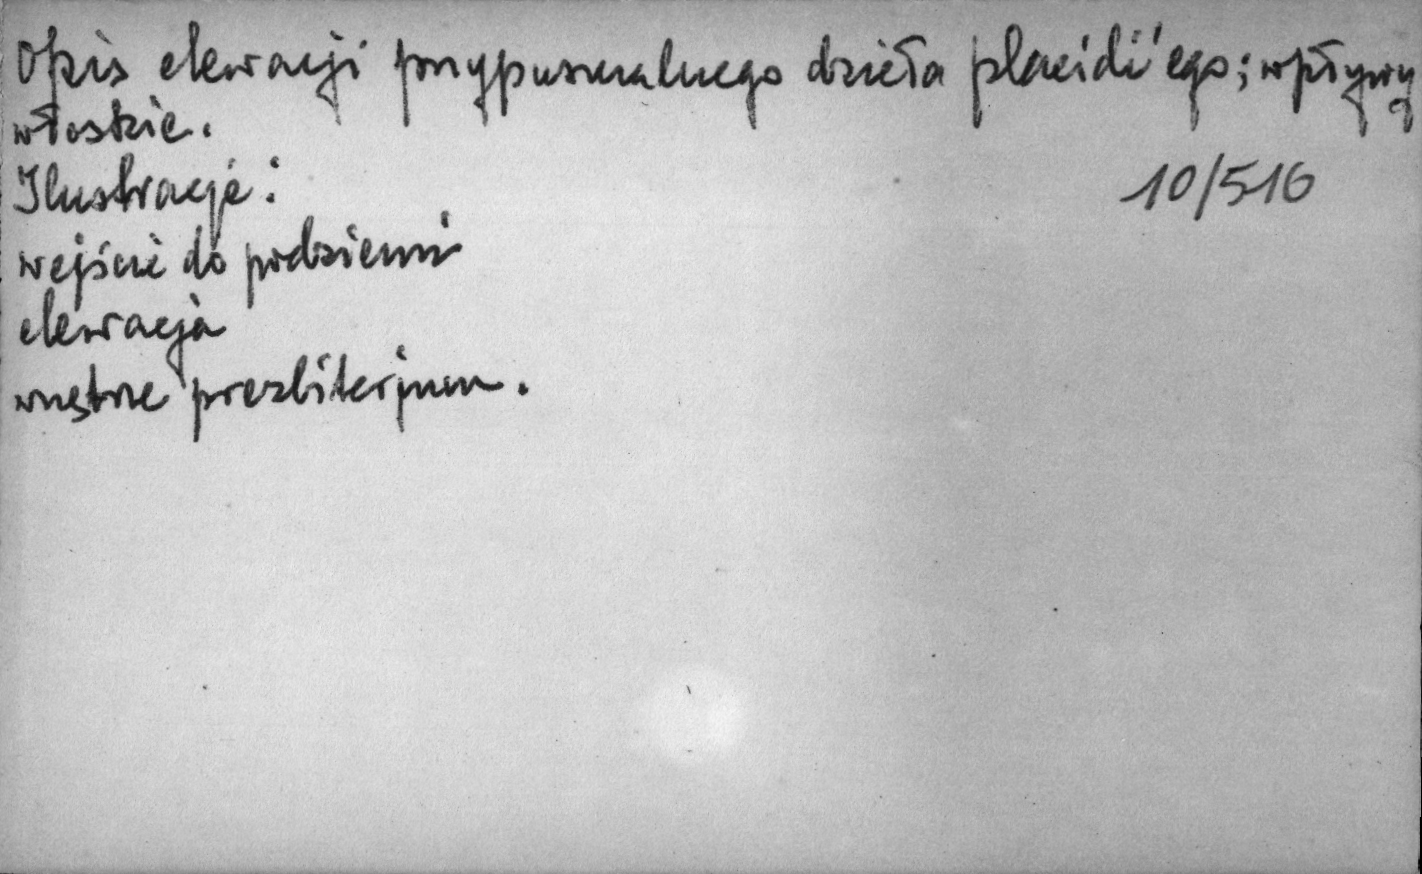 Opis elewacji przypuszczalnego dzieła placidi'ego; wpływy
włoskie.
Ilustracje:
10/516
wejście do podziemi
elewacja
wnętrze prezbiterjum.